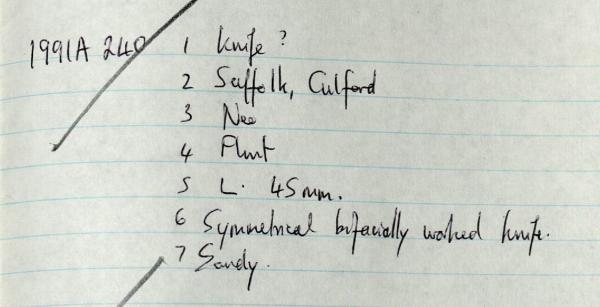 1991A 240 1 Knife ?
2 Suffolk, Culford
3 Neo
4 Flint
5 L. 45mm.
6 Symmetrical bifacially worked knife.
7 Sandy.